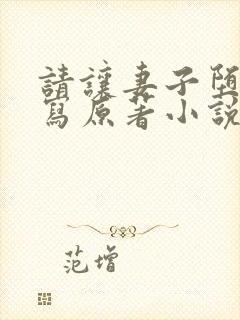 請讓妻子墮
寫原著小說
范增